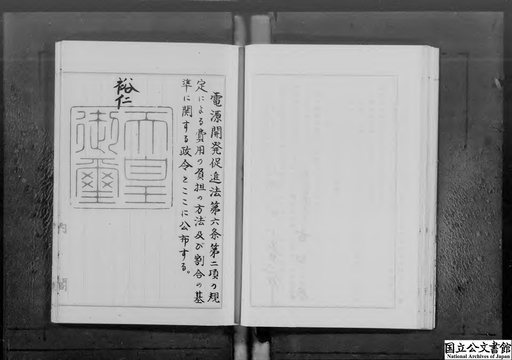 電源開発促進法第六条第二項の規
定による費用の負担の方法及び割合の基
準に関する政令をここに公布する。
裕仁
天皇
御璽
内閣
国立公文書館
National Archives of Japan